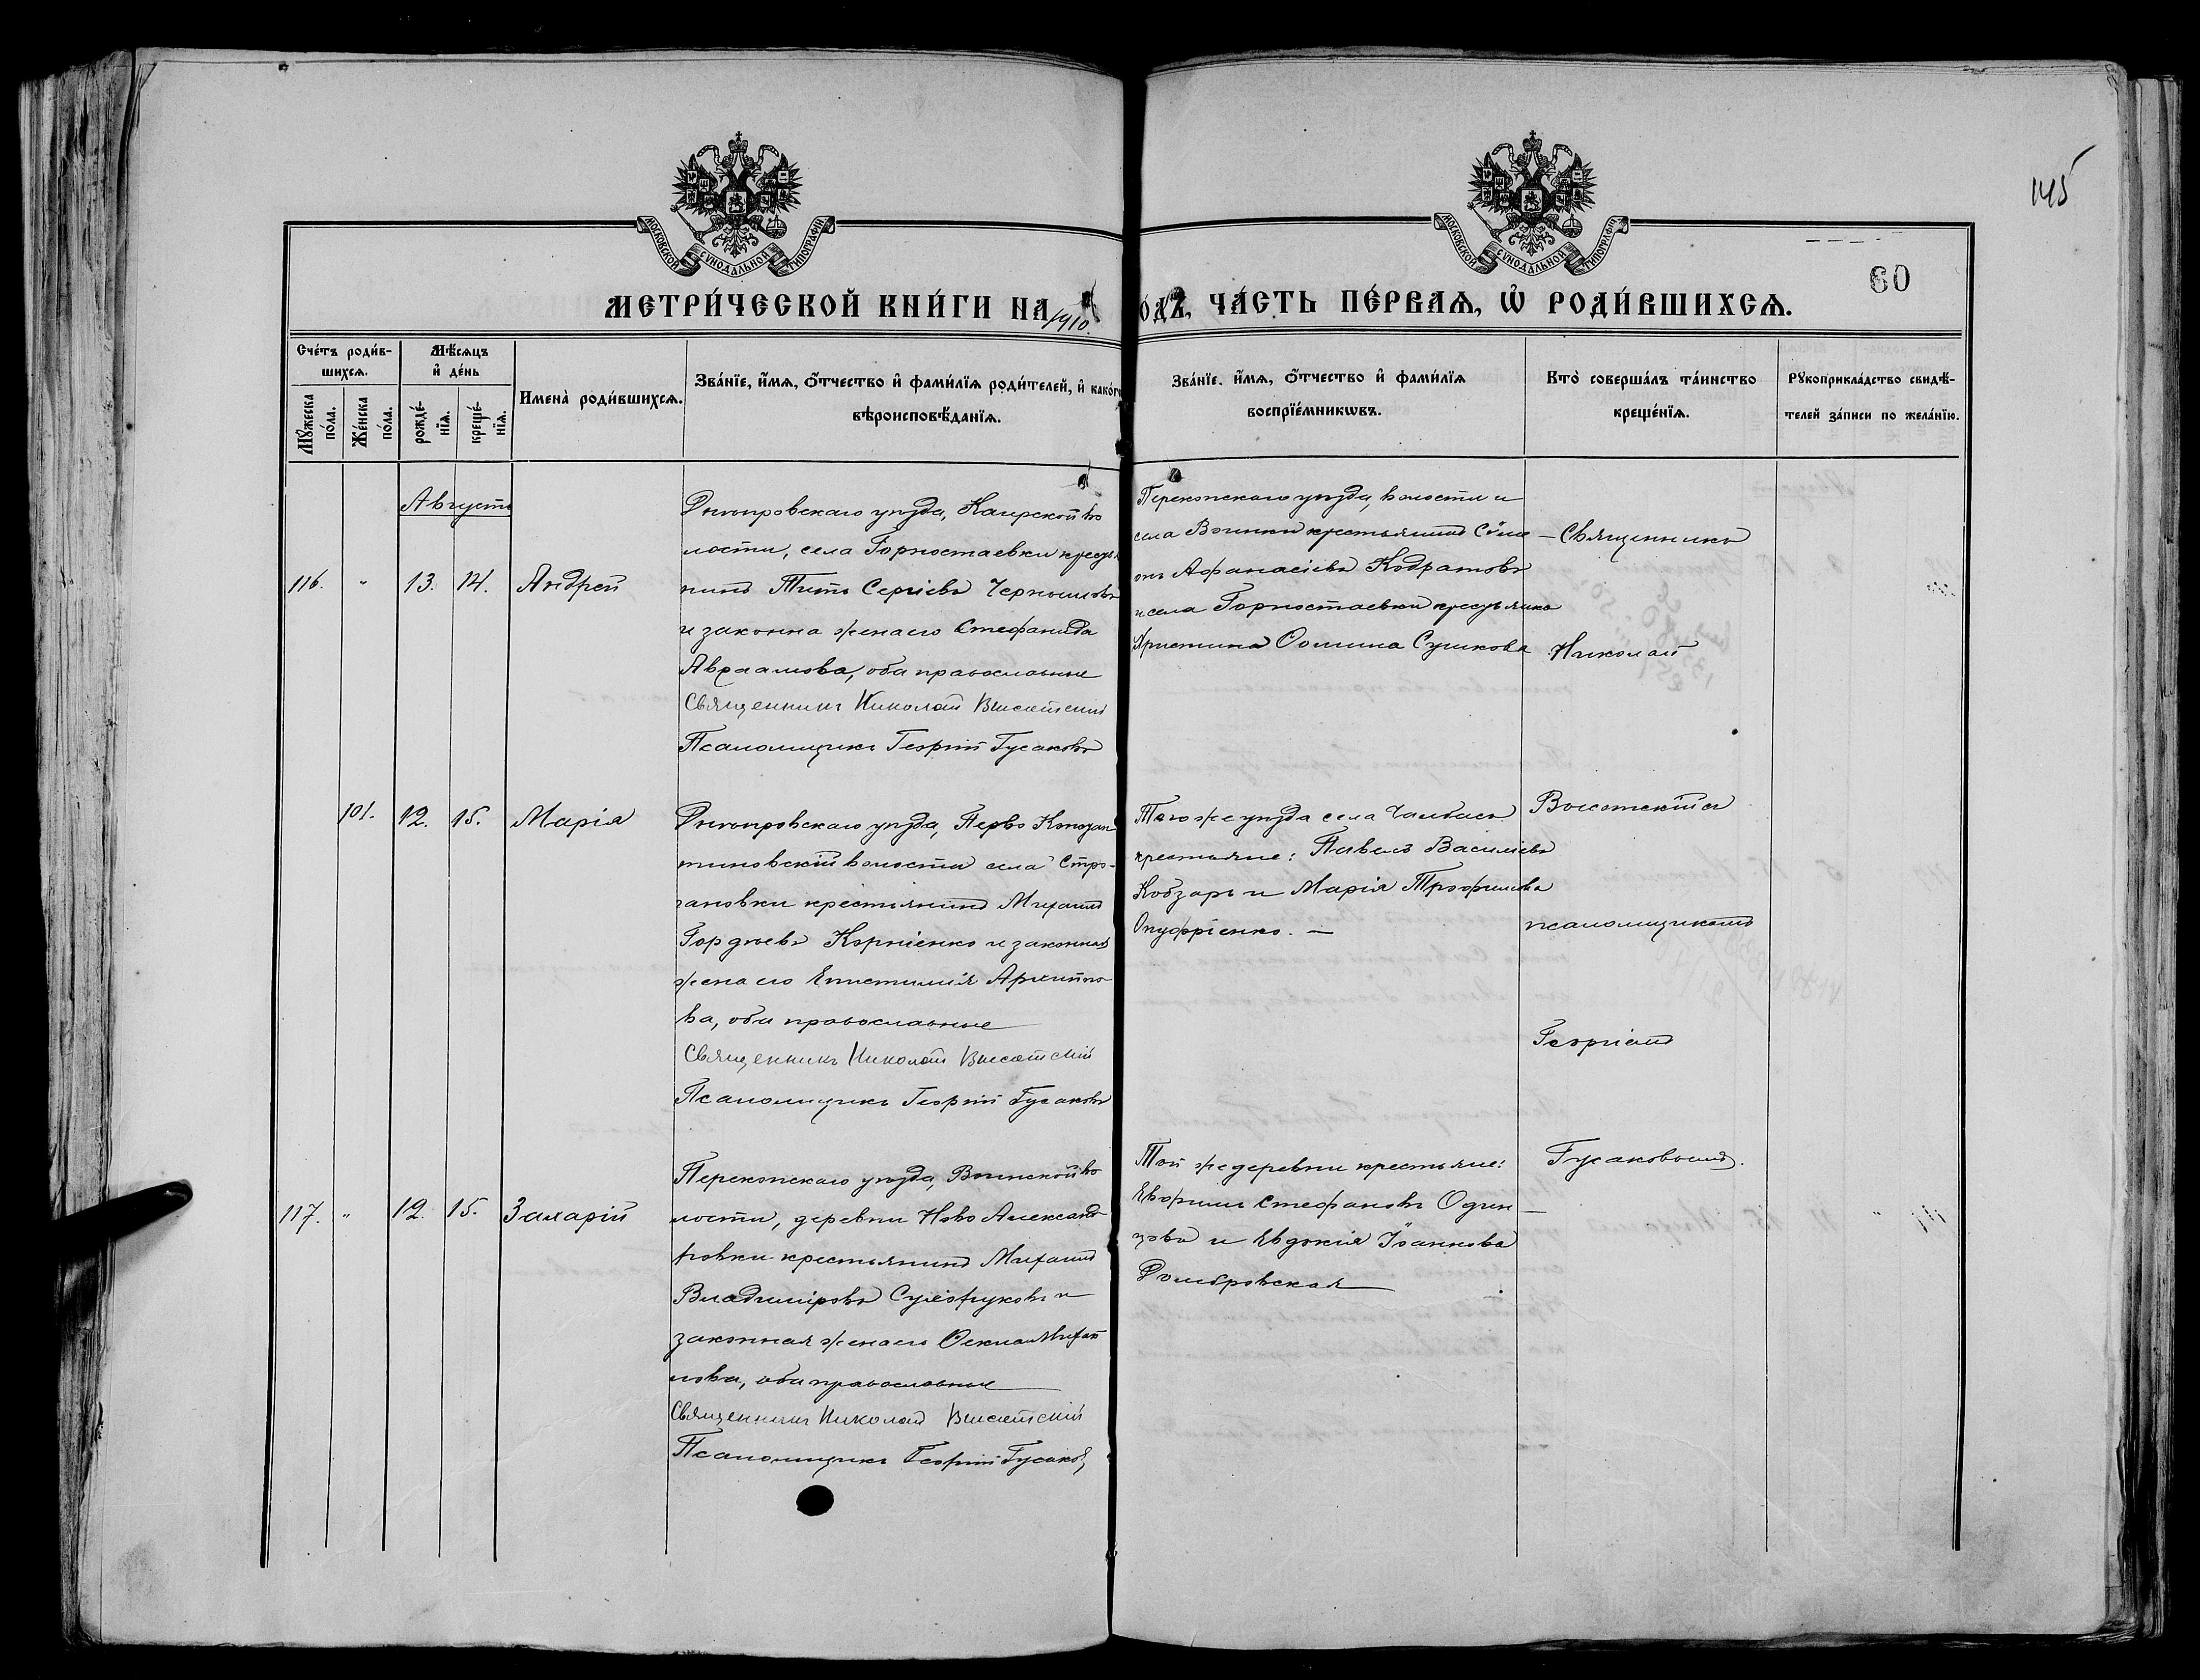 145
МОСКОВСКОЙ СѴНОДАЛЬНОЙ ТИПОГРАФІИ
МОСКОВСКОЙ СѴНОДАЛЬНОЙ ТИПОГРАФІИ
60
МЕТРИ́ЧЕСКОЙ КНИ́ГИ НА 1910
ОДЪ, ЧА́СТЬ ПЕ́РВАѦ, Ѡ҆ РОДИ́ВШИХСѦ.
Сче́тъ роди́в-
шихсѧ.
Мѣ́сѧцъ
и҆ де́нь
Мꙋ́жеска
по́ла.
Же́нска
по́ла.
рожде́-
нїѧ.
креще́-
нїѧ.
Имена̀ роди́вшихсѧ.
Зва́нїе, и҆́мѧ, ѻ҆́тчество и҆ фами́лїѧ роди́телей, и҆ како́гѡ
вѣроисповѣ́данїѧ.
Зва́нїе, и҆́мѧ, ѻ҆́тчество и҆ фами́лїѧ
воспрїе́мникѡвъ.
Кто̀ соверша́лъ та́инство
креще́нїѧ.
Рꙋкоприкла́дство свидѣ́-
телей за́писи по жела́нїю.
Августъ
116. " 13. 14. Андрей
Днѣпровскаго уѣзда, Каирской во
лости, села Горностаевки крестья
нинъ Титъ Сергіевъ
и законна жена его Стефанида
Авраамова, оба православные
Священникъ Николай Высотскій
Псаломщикъ Георгій Гусаковъ
Перекопскаго уѣзда, волости и
села Воинки крестьянинъ Симе
онъ Афанасіевъ Кодратовъ
и села Горностаевки крестьянка
Христина Ѳомина Сушкова
Священникъ
Николай
101. 12. 15. Марія
Днѣпровскаго уѣзда, Перво Констан
тиновской волости села Стро-
гановки крестьянинъ Михаилъ
Гордѣевъ Корніенко и законная
жена его Епистимія Архипо
ва, оба православные
Священникъ Николай Высотскій
Псаломщикъ Георгій Гусаковъ
Того же уѣзда села Чалбасъ
крестьяне: Павелъ Василіевъ
Кобзарь и Марія Трофимова
Онуфріенко. —
Высотскій съ
псаломщикомъ
Георгіемъ
117. " 12. 15. Захарій
Перекопскаго уѣзда, Воинской во
лости, деревни Ново Александ
ровки крестьянинъ Михаилъ
Владиміровъ и
законная жена его Ѳекла Михаи
лова, оба православные
Священникъ Николай Высотскій
Псаломщикъ Георгій Гусаковъ
Той же деревни крестьяне:
Стефановъ Один
цовъ и Евдокія Іоаннова
Домбровская
Гусаковымъ.